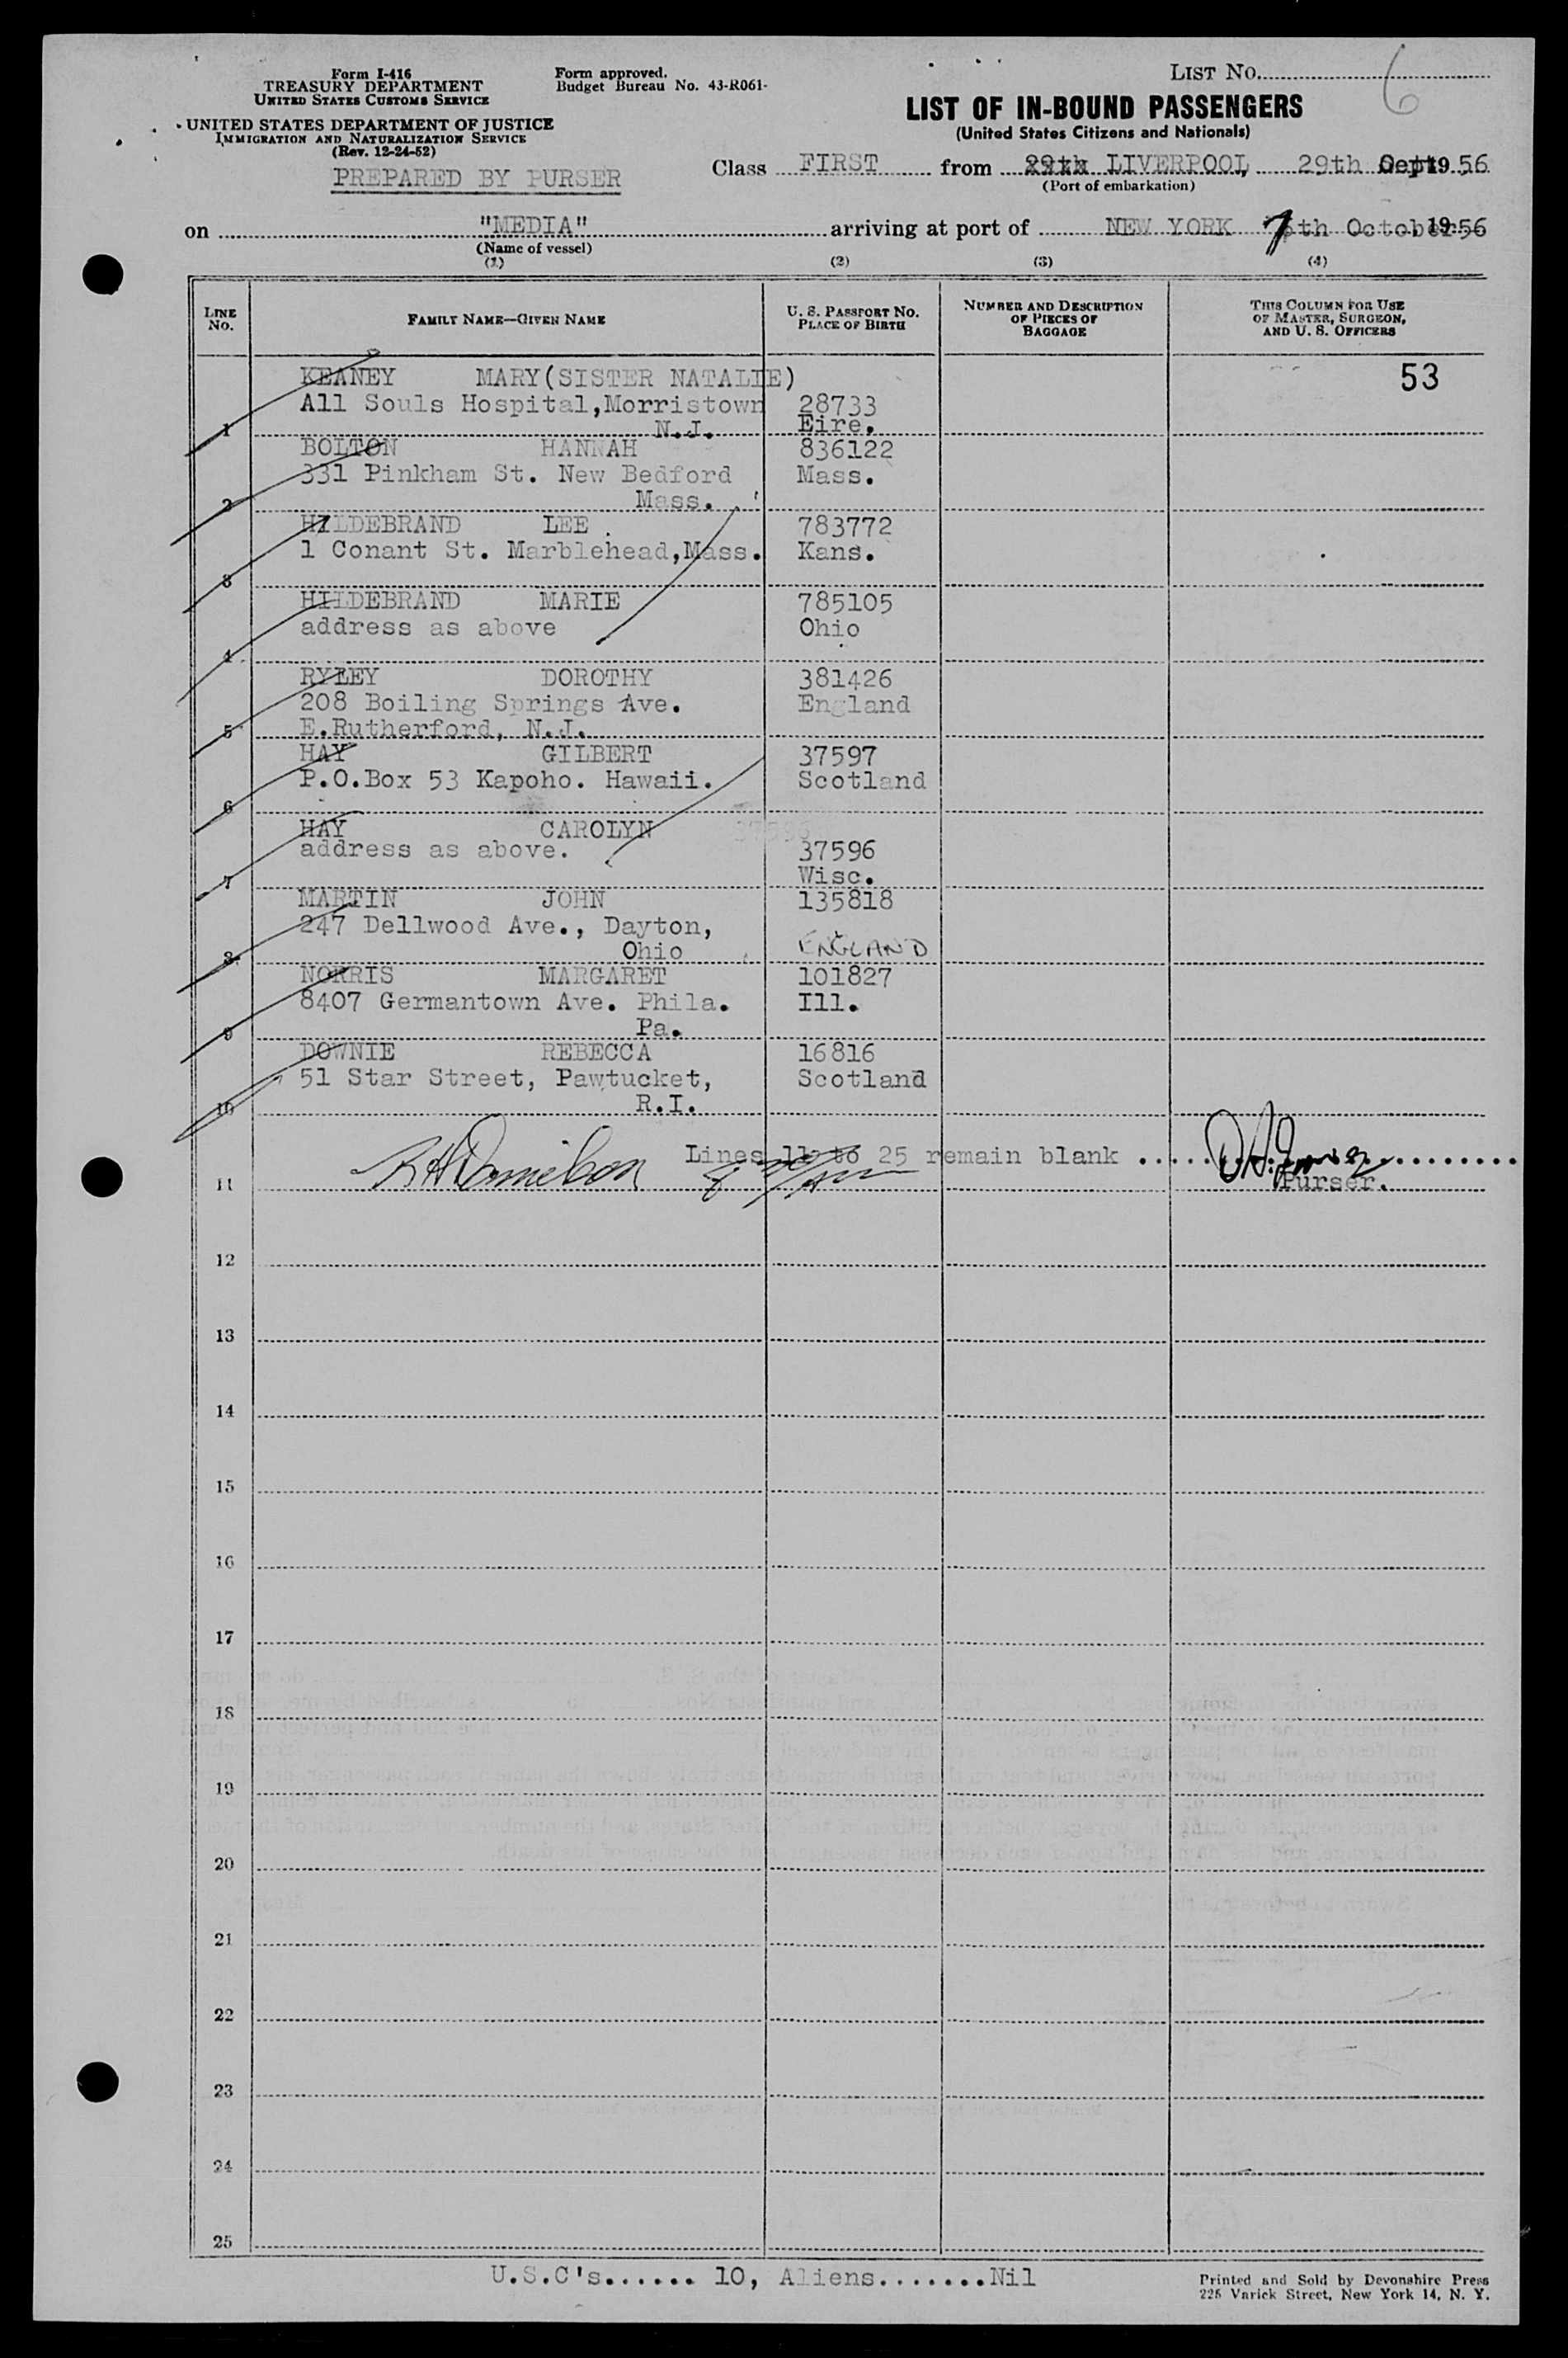 Form I-416
TREASURY DEPARTMENT
UNITED STATES CUSTOMS SERVICE
UNITED STATES DEPARTMENT OF JUSTICE
IMMIGRATION AND NATURALIZATION SERVICE
(Rev. 12-24-52)
PREPARED BY PURSER
Form approved.
Budget Bureau No. 43-R061-
LIST No. 6
LIST OF IN-BOUND PASSENGERS
(United States Citizens and Nationals)
Class FIRST from 29th LIVERPOOL, 29th Sept 19 56
(Port of embarkation)
on "MEDIA" arriving at port of NEW YORK 7th October 19 56
(Name of vessel)
(1) (2) (3) (4)
LINE No. FAMILY NAME—GIVEN NAME U. S. PASSPORT No. PLACE OF BIRTH NUMBER AND DESCRIPTION OF PIECES OF BAGGAGE THIS COLUMN FOR USE OF MASTER, SURGEON, AND U. S. OFFICERS
53
KEANEY MARY(SISTER NATALIE)
All Souls Hospital,Morristown 28733
1 N.J. Eire.
BOLTON HANNAH 836122
331 Pinkham St. New Bedford Mass.
2 Mass.
HILDEBRAND LEE 783772
1 Conant St. Marblehead,Mass. Kans.
3
HILDEBRAND MARIE 785105
address as above Ohio
4
RYLEY DOROTHY 381426
208 Boiling Springs Ave. England
5 E.Rutherford, N.J.
HAY GILBERT 37597
P.O.Box 53 Kapoho. Hawaii. Scotland
6
HAY CAROLYN
address as above. 37596
7 Wisc.
MARTIN JOHN 135818
247 Dellwood Ave., Dayton,
8 Ohio ENGLAND
NORRIS MARGARET 101827
8407 Germantown Ave. Phila. Ill.
9 Pa.
DOWNIE REBECCA 16816
51 Star Street, Pawtucket, Scotland
10 R.I.
Lines 11 to 25 remain blank
11 Purser.
12
13
14
15
16
17
18
19
20
21
22
23
24
25
U.S.C's...... 10, Aliens.......Nil
Printed and Sold by Devonshire Press
225 Varick Street, New York 14, N. Y.